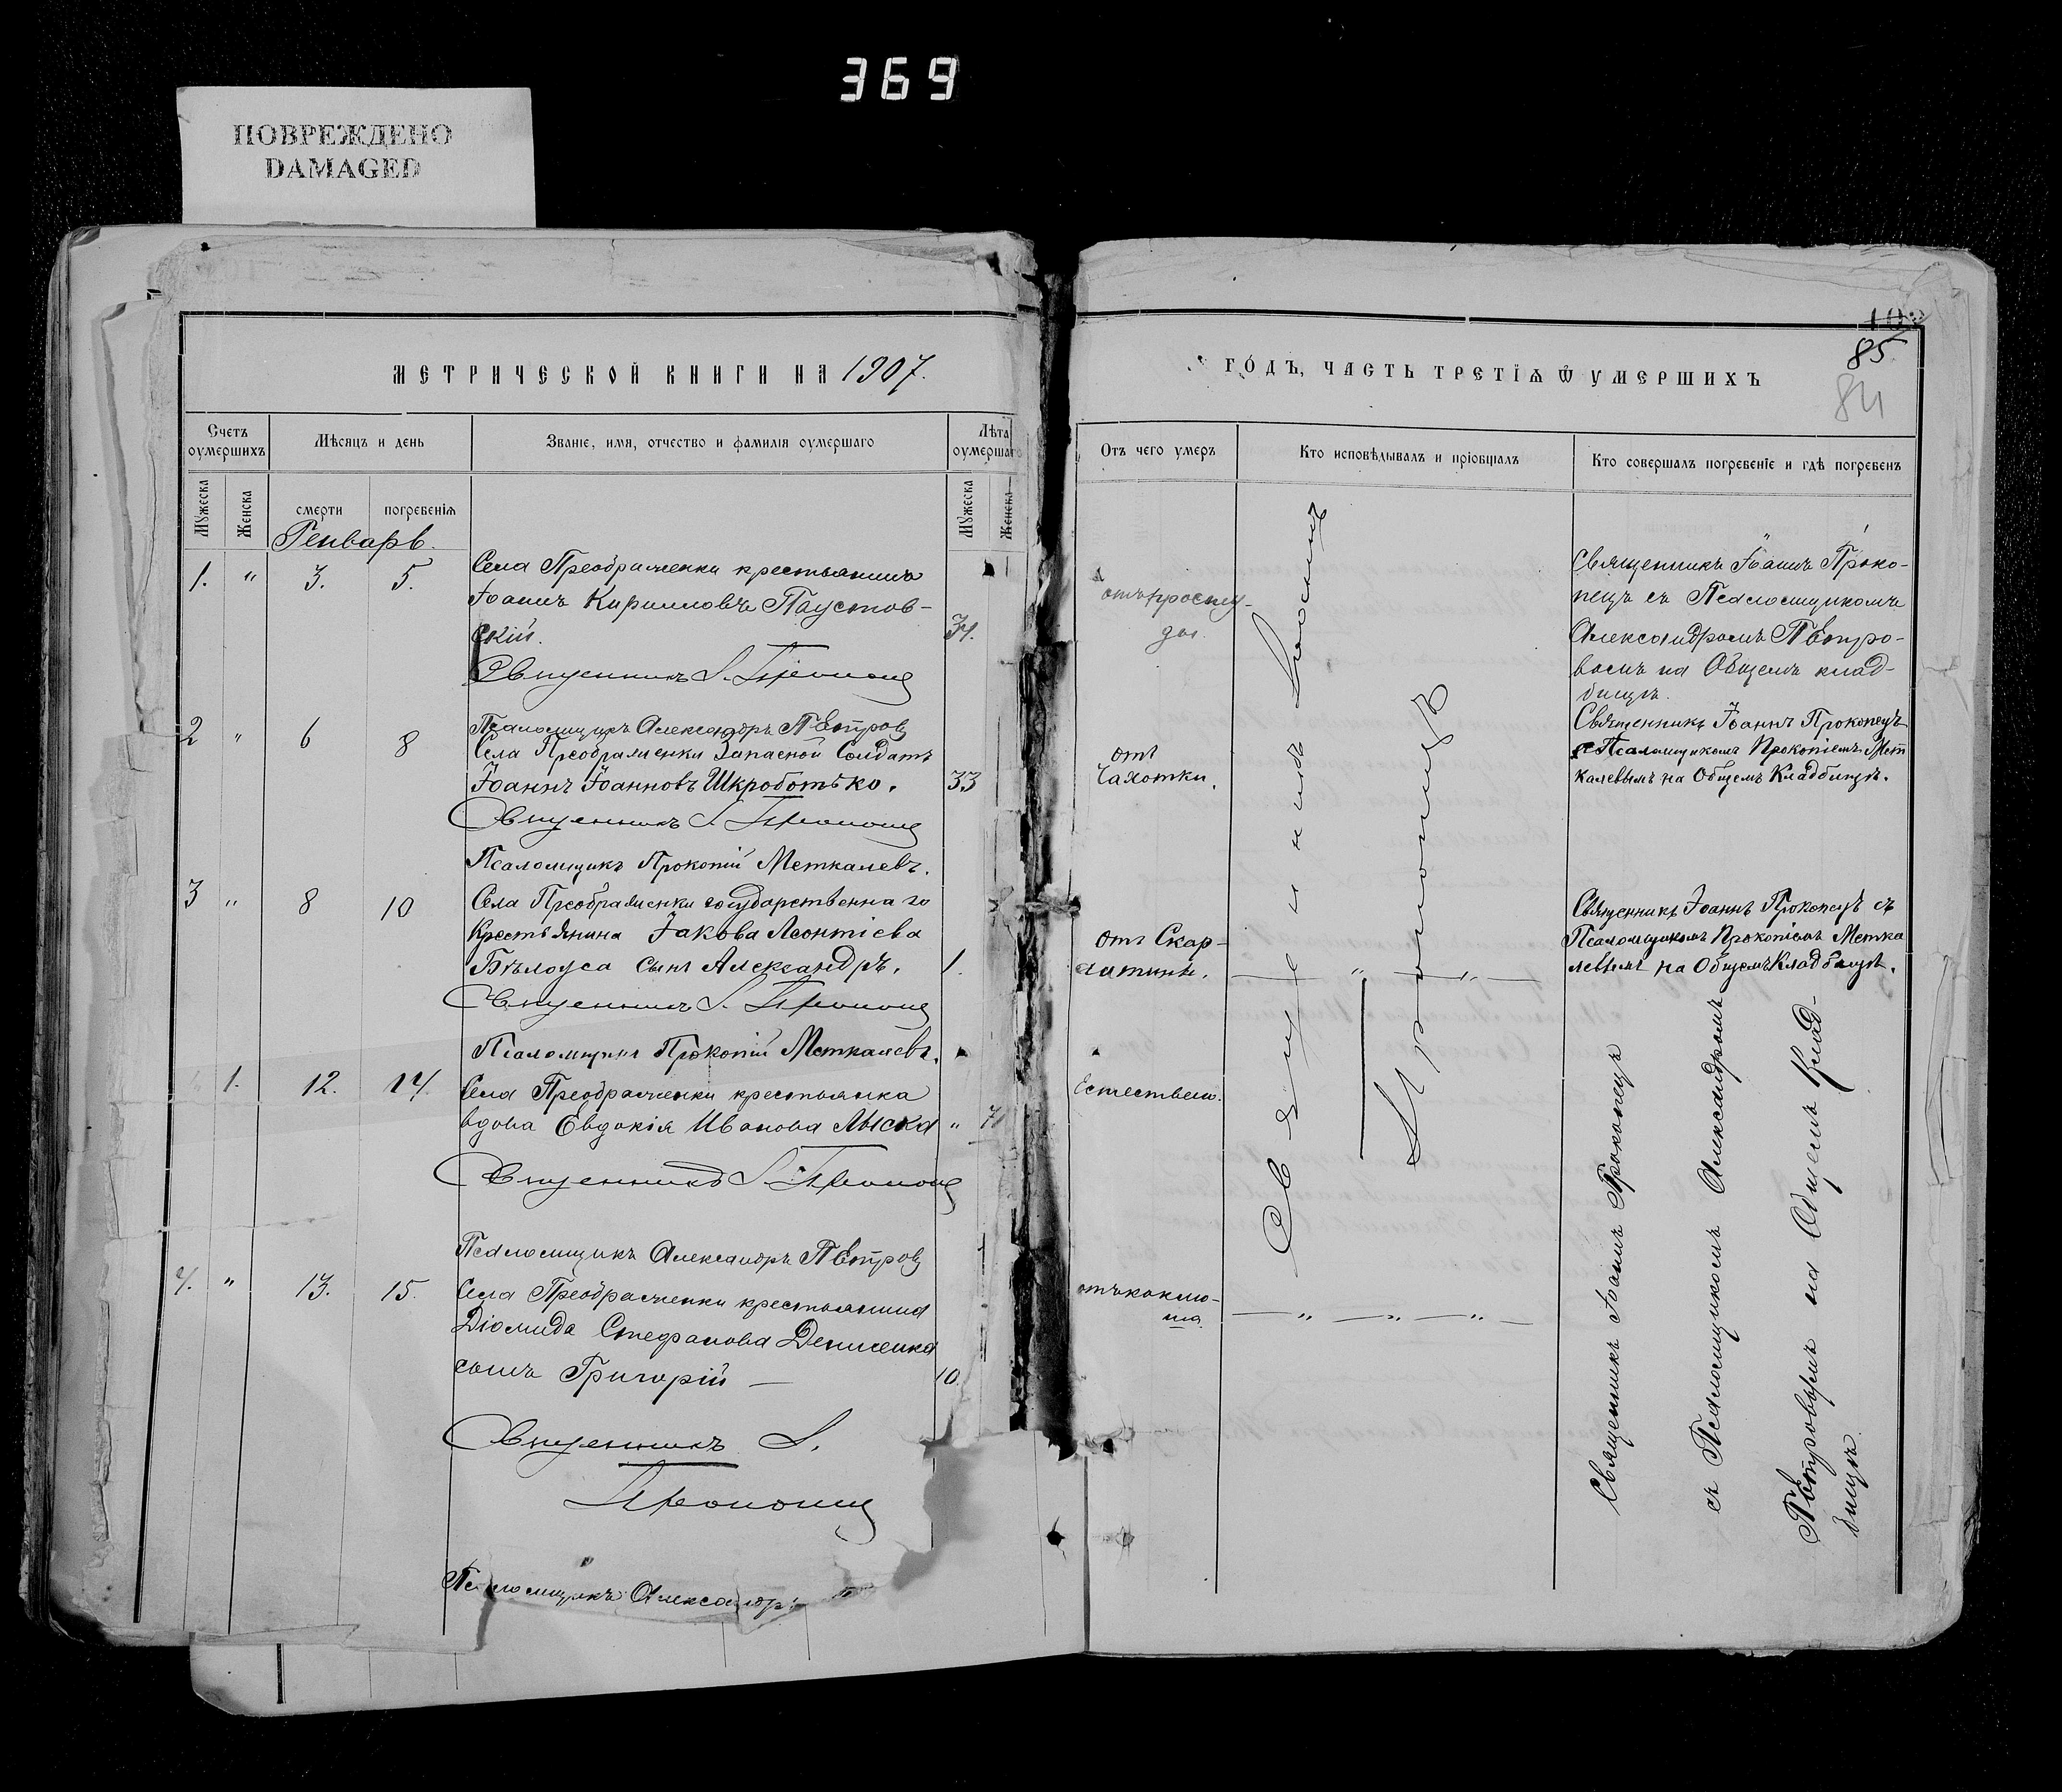 369
ПОВРЕЖДЕНО
DAMAGED
МЕТРИЧЕСКОЙ КНИГИ НА 1907.
Счетъ оумершихъ
Мѣсяцъ и день
Званіе, имя, отчество и фамилія оумершаго
Лѣта оумершаг
Мужеска
Женска
смерти
погребенія
Мужеска
Женска
Генварь.
1. " 3. 5.
Села Преображенки крестьянинъ
Іоаннъ Кирилловъ Паустов-
скій.
34.
Священникъ І. Прокопец
Псаломщикъ Александръ Петров
2 " 6 8
Села Преображенки Запасной Солдатъ
Іоаннъ Іоанновъ Шкроботько.
33
Священникъ І. Прокопец
Псаломщикъ Прокопій Меткалевъ.
3 " 8 10
Села Преображенки государственна го
Крестьянина Іакова Леонтіева
Бѣлоуса сынъ Александръ.
1.
Священникъ І. Прокопец
Псаломщикъ Прокопій Меткалевъ.
1. 12. 14.
Села Преображенки крестьянка
вдова Евдокія Иванова Лыска
" 71
Священникъ І. Прокопец
Псаломщикъ Александръ Петров
4. " 13. 15.
Села Преображенки крестьянина
Діомида Стефанова Денисенка
сынъ Григорій —
10.
Священникъ І.
Прокопец
Псаломщикъ Александръ П
ГОДЪ, ЧАСТЬ ТРЕТІЯ Ѿ УМЕРШИХЪ
102
85
84
Отъ чего умеръ
Кто исповѣдывалъ и пріобщалъ
Кто совершалъ погребеніе и гдѣ погребенъ
отъ просту-
ды.
Священникъ Іоаннъ
Прокопецъ
Священникъ Іоаннъ Проко-
пецъ съ Псаломщикомъ
Александромъ Петро-
вымъ на Общемъ клад-
бищѣ.
отъ
Чахотки.
Священникъ Іоаннъ Прокопецъ
с Псаломщикомъ Прокопіемъ Мет
калевымъ на Общемъ Кладбищѣ.
отъ Скар-
латины.
— " — " —
Священникъ Іоаннъ Прокопецъ съ
Псаломщикомъ Прокопіемъ Метка
левымъ на Общемъ Кладбищѣ.
Естествен.
отъ коклю-
ша.
— " — " — " —
Священникъ Іоаннъ Прокопецъ
съ Псаломщикомъ Александромъ
Петровымъ на Общемъ Клад-
бищѣ.